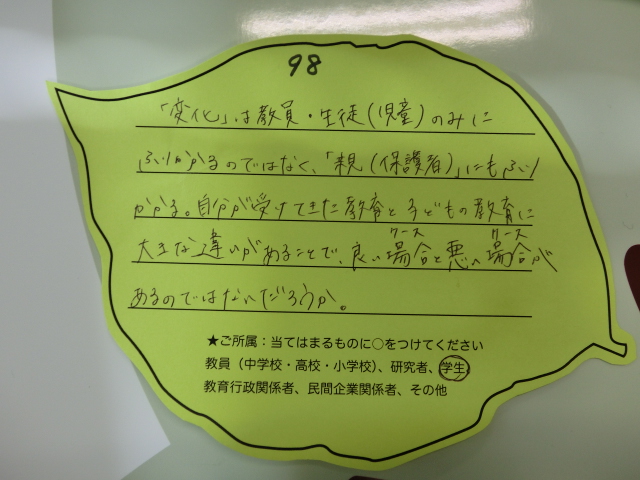 98
「変化」は教員・生徒(児童)のみに
ふりかかるのではなく、「親(保護者)」にもふり
かかる。自分が受けてきた教育と子どもの教育に
ケース ケース
大きな違いがあることで、良い場合と悪い場合が
あるのではないだろうか。
★ご所属：当てはまるものに○をつけてください
教員（中学校・高校・小学校）、研究者、学生
教育行政関係者、民間企業関係者、その他